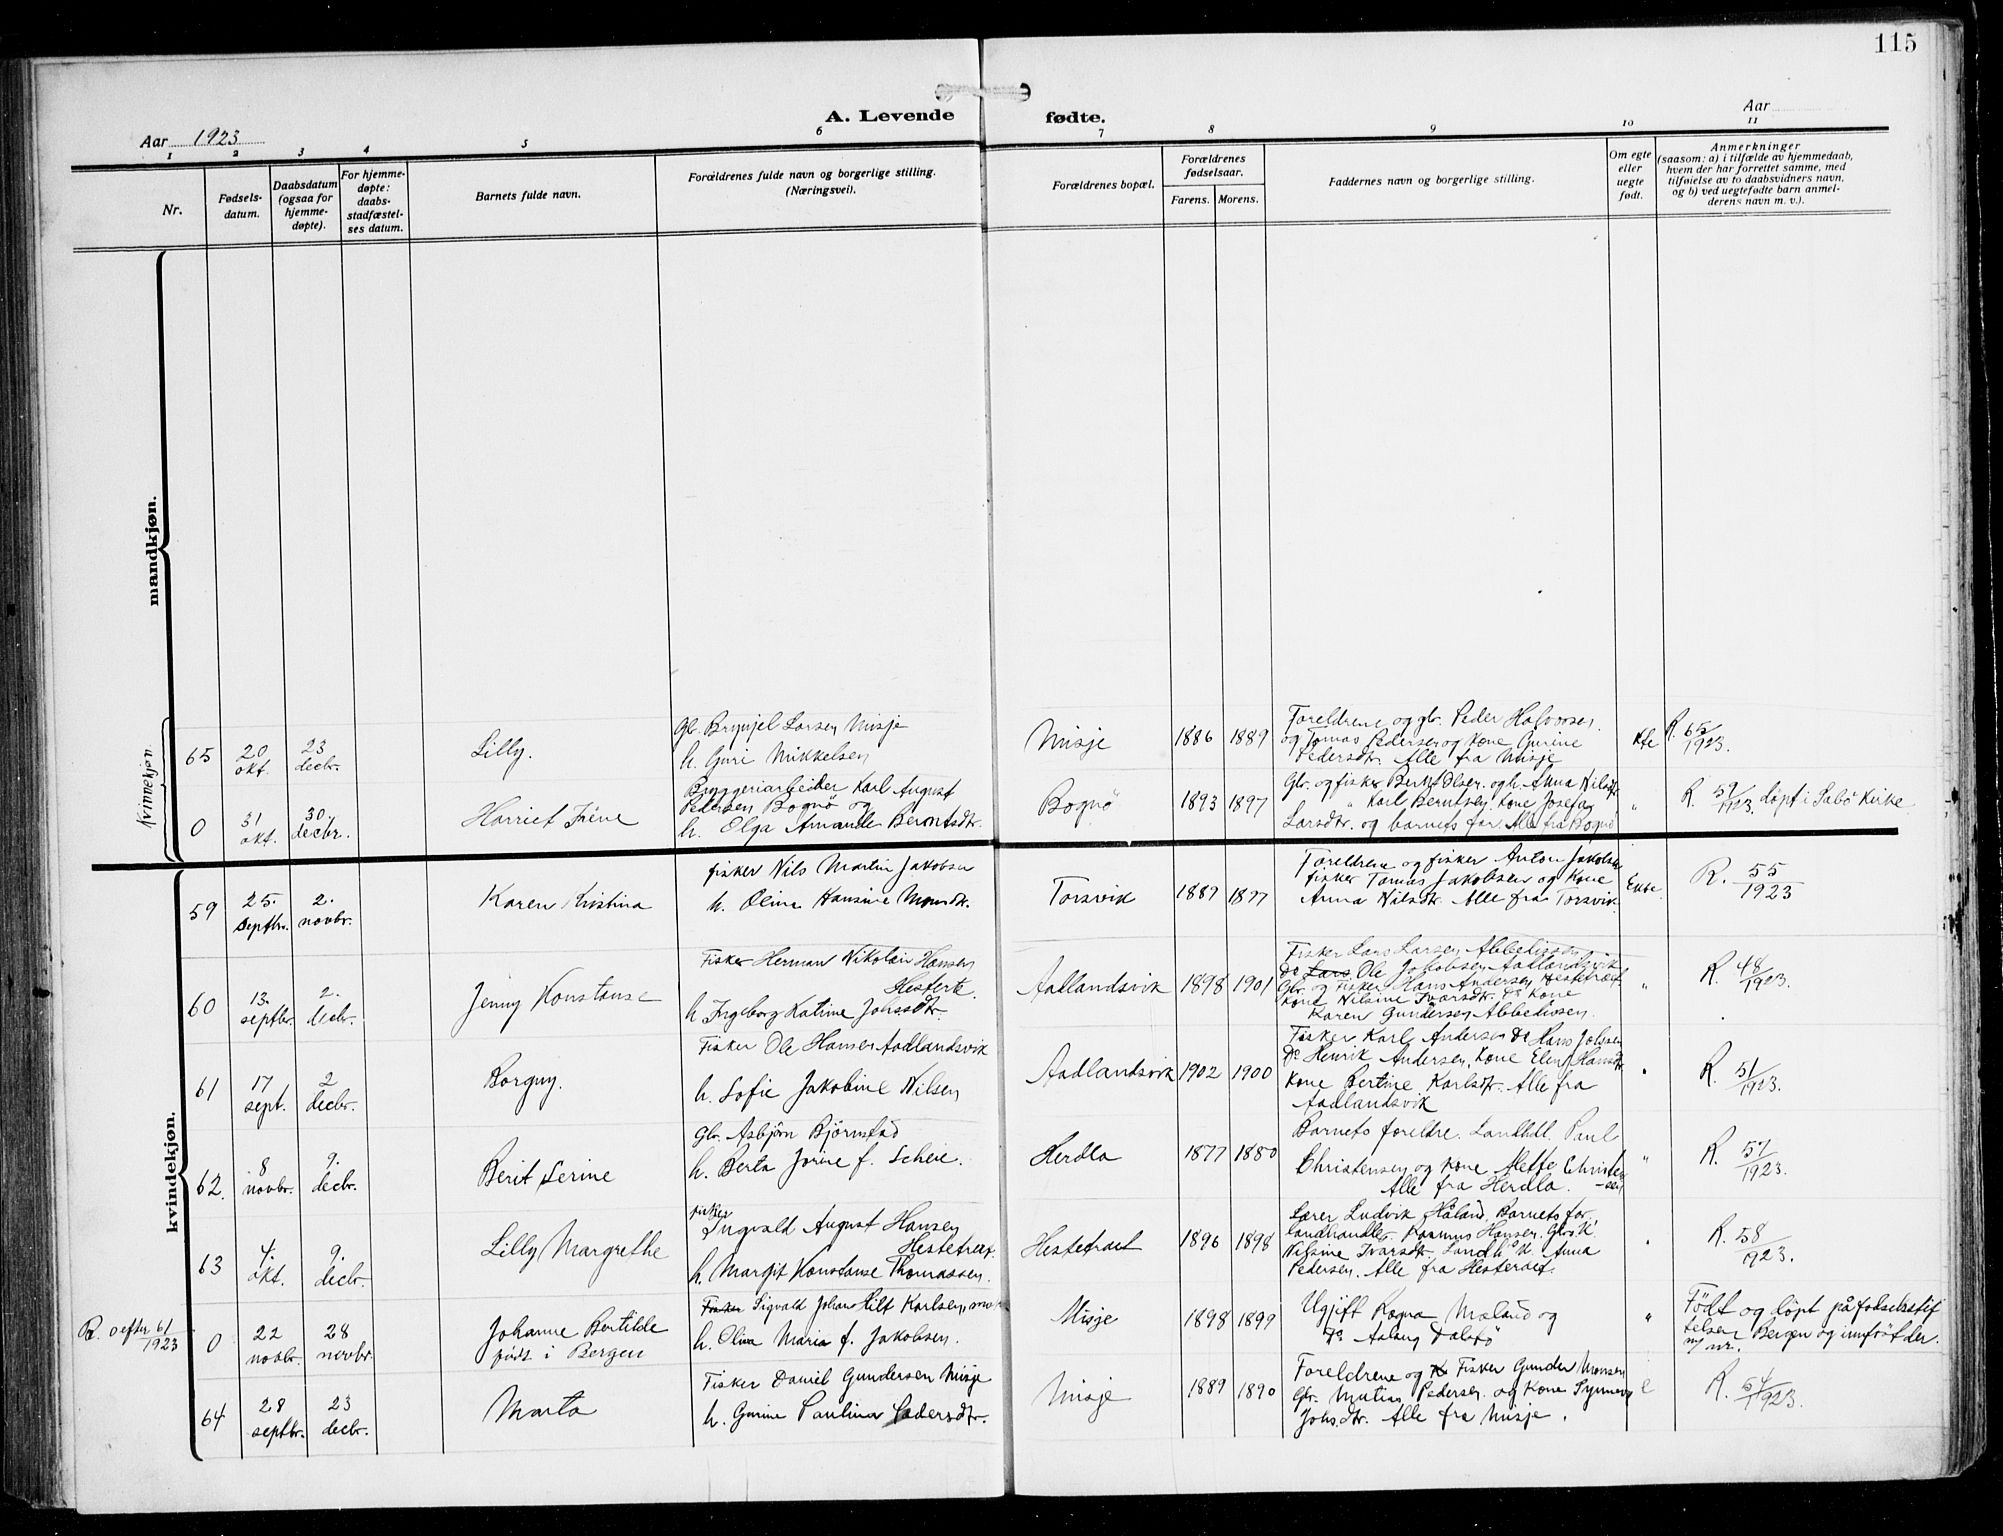 115
A. Levende fødte.
Aar 1923
Aar
1 2 3 4 5 6 7 8 9 10 11
Nr.
Fødsels-
datum.
Daabsdatum
(ogsaa for
hjemme-
døpte).
For hjemme-
døpte:
daabs-
stadfæstel-
ses datum.
Barnets fulde navn.
Forældrenes fulde navn og borgerlige stilling.
(Næringsvei).
Forældrenes bopæl.
Forældrenes
fødselsaar.
Farens. Morens.
Faddernes navn og borgerlige stilling.
Om egte
eller
uegte
født.
Anmerkninger
(saasom: a) i tilfælde av hjemmedaab,
hvem der har forrettet samme, med
tilføielse av to daabsvidners navn,
og b) ved uegtefødte barn anmel-
derens navn m. v.).
mandkjøn.
Kvinnekjøn
65
20
okt.
23
decbr.
Lilly.
Gbr. Brynjel Larsen Misje
h. Guri Mikkelsen
Misje
1886 1889
Foreldrene og gbr. Peder Halvorsen.
og Tomas Pedersen og Kone Gurine
Pedersdtr. Alle fra Misje
Kte
R. 65/1923.
0
31
okt.
30.
decbr.
Harriet Iréne
Bryggeriarbeider Karl August
Pedersen Bognö og
h. Elga Amanda Berntsdtr.
Bognö
1893 1897
Gbr. og fisker Bernt Olsen og h. Anna Nilsdtr.
" Karl Berntsen, Kone Josefa
Larsdtr. og barnets far. Alle fra Bognö
"
R. 59/1923. döpt i Salö Kirke
kvindekjøn.
59
25.
septbr.
2.
novbr.
Karen Kristina
fisker Nils Martin Jakobsen
h. Olina Hansine Monsdtr.
Torsvik
1889 1897
Foreldrene og fisker Anton Jakobsen
fisker Tomas Jakobsen og Kone
Anna Nilsdtr. Alle fra Torsvik.
Ekte.
R. 55/1923
60
13.
septbr.
2.
decbr.
Jenny Konstanse
Fisker Herman Nikolai Hansen
Hestetr.
h Ingeborg Katrine Johssdtr.
Aadlandsvik
1898 1901
Fisker Lars Larsen Abbedissen
Do Lars Ole Jakobsen Aadlandsvik
Gbr. og Fisker Hans Andersen Hestetræet
Kone Nilsine Ivarsdtr. Do Kone
Karen Gundersen Abbedissen.
"
R. 48/1923.
61
17
sept.
2
decbr.
Borguy.
Fisker Ole Hansen Aadlandsvik
h. Sofie Jakobine Nilsen
Aadlandsvik
1902 1900
Fisker Karl Andersen Do Hans Johssen
Do Henrik Andersen, Kone Elen Hansdtr
Kone Bertine Karlsdtr. Alle fra
Aadlandsvik
"
R. 51/1923.
62.
8
novbr.
9.
decbr.
Berit Serine
Gbr. Asbjörn Björnstad
h. Berta Jorine f. Scheie.
Herdla
1877 1880
Barnets foreldre. Landhdl. Paul
Christensen og Kone Mette Christen
-sen
Alle fra Herdla.
"
R. 57/1923.
63
4.
okt.
9.
decbr.
Lilly Margrethe
fisker
Ingvald August Hansen
Hestetreet.
h. Margit Konstanse Thomassen.
Hestetraet
1896 1898
Lærer Ludvik Håland. Barnets far
Landhandler Rasmus Hansen. Gbrs K.
Nilsine Ivarsdtr. Landhs K. Anna
Pedersen. Alle fra Hestetraet.
"
R. 58/1923.
R. 0 efter 61/1923
0
22
novbr.
28
novbr.
Johanne Bertilde
födt i Bergen
Fisker Sigvald Johan Hilt Karlsen,
h. Olina Maria f. Jakobsen.
Misje
1898 1899
Ugift Ragna Moland og
Do Aalaug Dalsfö
"
Födt og döpt på födselsstif
telsen Bergen og innfört der.
m/ nr.
64
28
septbr.
23
decbr.
Marta
Fisker Daniel Gundersen Misje
h. Gurine Paulina Pedersdtr.
Misje
1889 1890
Foreldrene og Fisker Gunder Monsen
Gbr. Matias Pedersen og Kone Synneva
Johs.dtr. Alle fra Misje.
e
R. 64/1923.